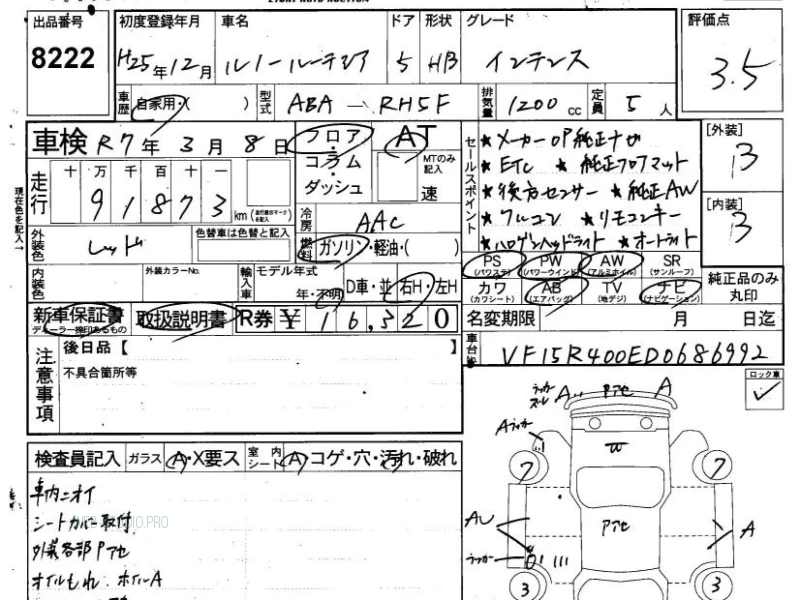 出品番号 初度登録年月 車名 ドア 形状 グレード 評価点
8222 H25年12月 ルノールーテシア 5 HB インテンス 3.5
車歴 自家用・( ) 型式 ABA-RH5F 排気量 1200cc 定員 5人
車検 R7年3月8日 フロア・コラム・ダッシュ AT セールスポイント ★メーカーOP純正ナビ [外装]
MTのみ記入 速 ★ETC ★純正フロアマット B
走行 十 万 千 百 十 一 ★後方センサー ★純正AW [内装]
91873 km 冷房 AAC ★フルコン ★リモコンキー B
現在色を記入→ 外装色 レッド 色替車は色替と記入 燃料 ガソリン・軽油・( ) ★ハロゲンヘッドライト ★オートライト
内装色 外装カラーNo. 輸入車 モデル年式 年・不明 D車・並 右H・左H
PS (パワステ) PW (パワーウインド) AW (アルミホイル) SR (サンルーフ) 純正品のみ丸印
カワ (カワシート) AB (エアバッグ) TV (地デジ) ナビ (ナビゲーション)
新車保証書 ディーラー捺印あるもの 取扱説明書 R券 ¥ 16,320 名変期限 月 日迄
車台No. VF15R400ED0686992
注意事項 後日品【 】 ロック車
不具合箇所等
ラッカー A Pアセ A
Aラッカー
検査員記入 ガラス A・X要ス 室内シート A コゲ・穴・汚れ・破れ 7 7
車内ニオイ
シートカバー取付 AU Pアセ A
外装各部Pアセ
オイルもれ. ホイールA ラッカー 3 3